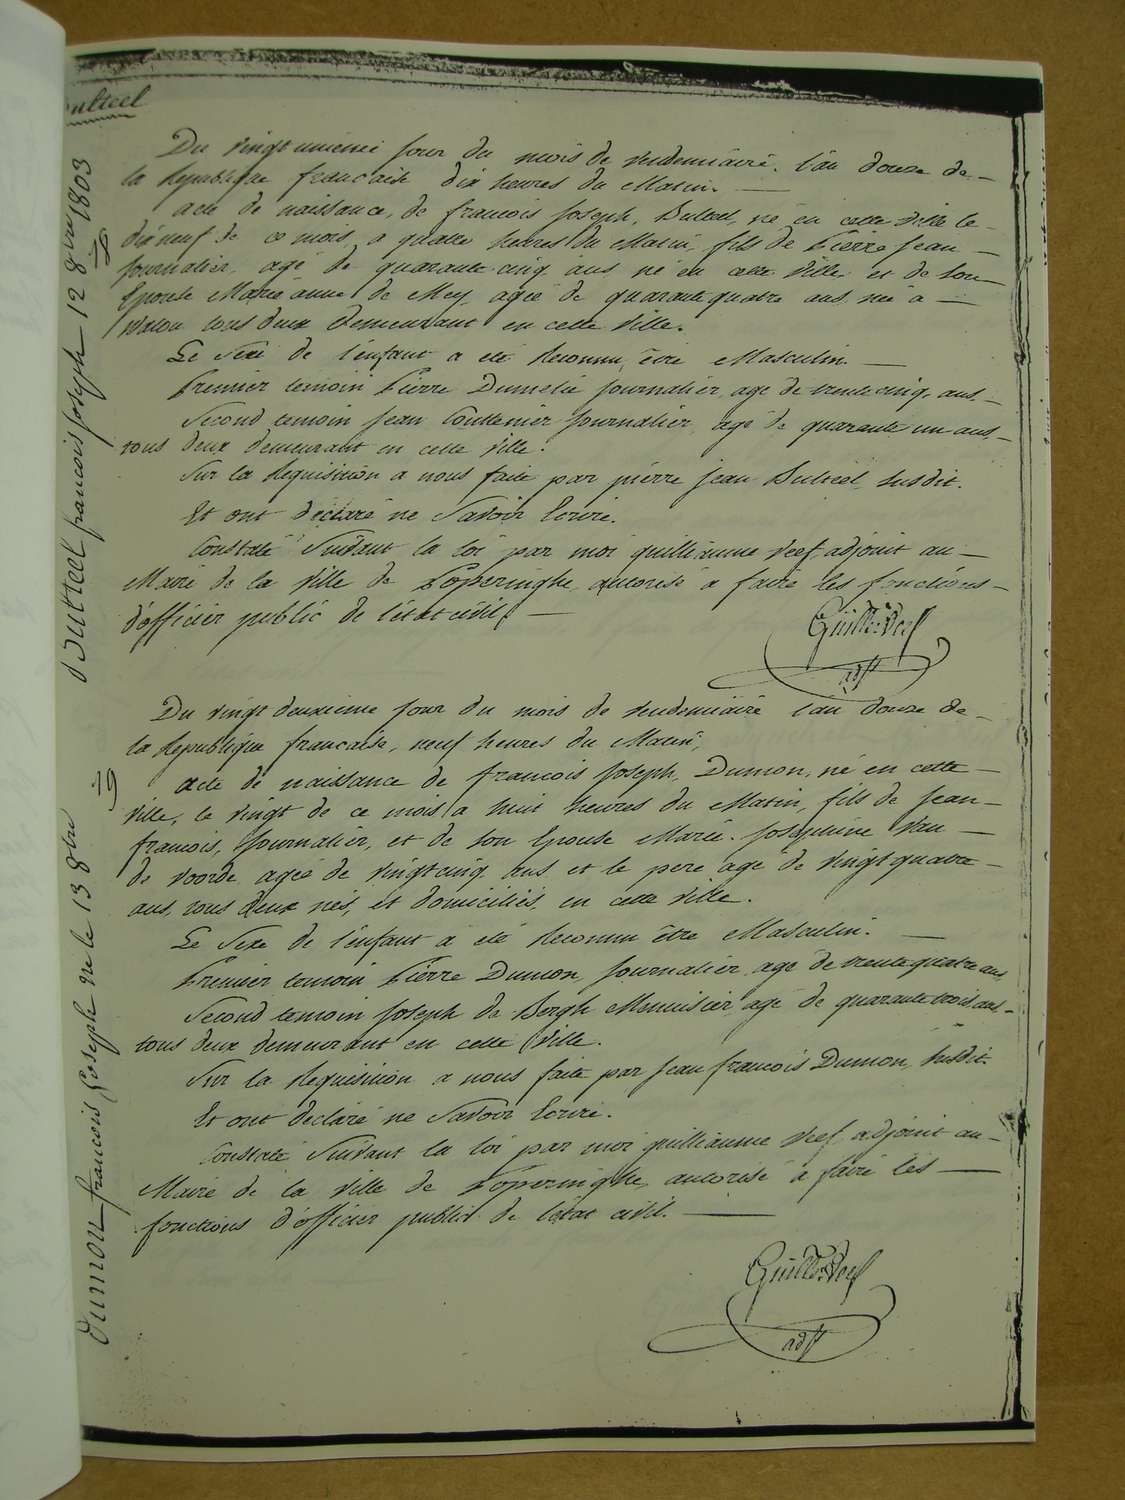 ulteel
Du vingt unieme jour du mois de vendemiaire, l'an douze de
la Republique francaise dix heures du Matin.
acte de naissance, de francois Joseph, Bulteel, né en cette ville le
dix neuf de ce mois, a quatre heures du Matin, fils de Pierre Jean
Journalier, agé de quarante cinq ans né en cette ville et de son
Epouse Marie anne de Mey, agée de quarante quatre ans, née à
Watou tous deux demeurant en cette ville.
Le Sexe de l'enfant a été Reconnu être Masculin.
Premier temoin Pierre Journalier agé de trente cinq ans
Second temoin Jean Journalier, agé de quarante un ans,
tous deux demeurant en cette ville.
Sur la Requisition a nous faite par pierre jean Bulteel, susdit.
Et ont déclaré ne Savoir Ecrire.
Constaté Suivant la loi par moi guilliaume Veef adjoint au
Maire de la ville de Poperinghe, autorisé a faire les fonctions
d'officier public de l'état civil
Guille Veef
adjt
Du vingt deuxieme jour du mois de vendemiaire l'an douze de
la Republique francaise, neuf heures du Matin,
acte de naissance de francois Joseph, Dumon, né en cette
ville, le vingt de ce mois a huit heures du Matin, fils de Jean
francois, Journalier, et de son Epouse Marie Josephine Van
de voorde agée de vingt cinq ans et le pere agé de vingt quatre
ans, tous deux nés, et domiciliés, en cette ville.
Le Sexe de l'enfant a été Reconnu être Masculin.
Premier temoin Pierre Dumon, Journalier agé de trente quatre ans,
Second temoin Joseph de Bergh Menuisier agé de quarante trois ans,
tous deux demeurant en cette ville.
Sur la Requisition a nous faite par Jean francois Dumon, susdit.
Et ont declaré ne Savoir Ecrire.
Constaté Suivant la loi par moi guilliaume Veef adjoint au
Maire de la ville de Poperinghe, autorisé a faire les
fonctions d'officier public de l'état civil.
Guille Veef
adjt
Bulteel francois joseph 12 8bre 1803
18
dumon francois Joseph né le 13 8bre
19